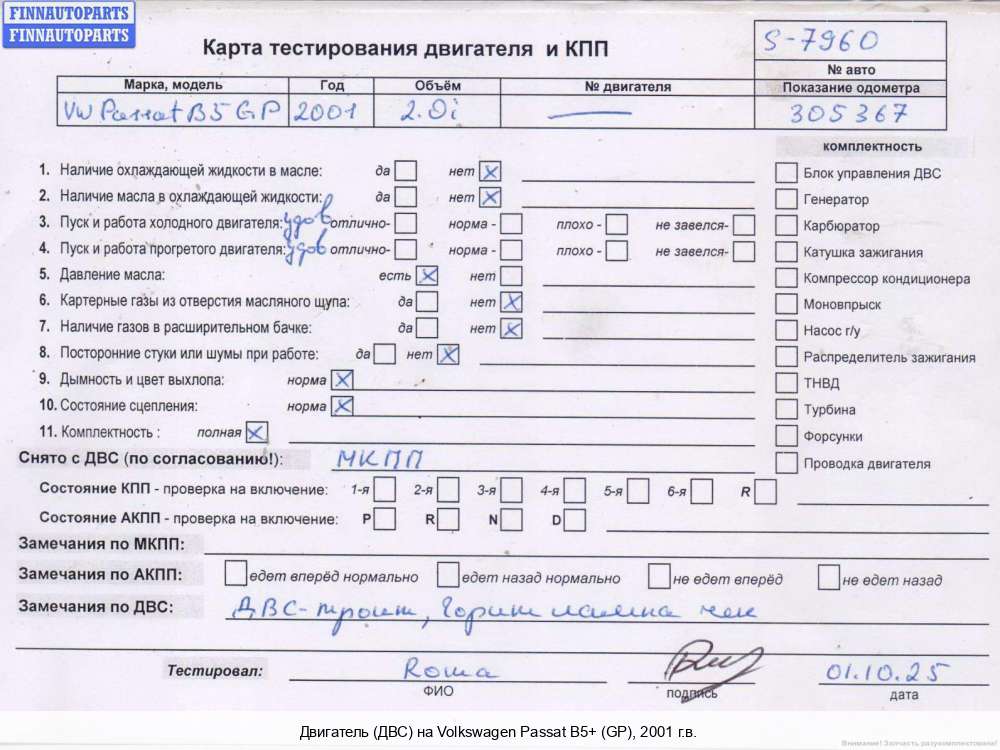 FINNAUTOPARTS
FINNAUTOPARTS
Карта тестирования двигателя и КПП
S-7960
№ авто
Марка, модель Год Объём № двигателя Показание одометра
VW Passat B5 GP 2001 2.0i — 305367
комплектность
1. Наличие охлаждающей жидкости в масле: да нет X
Блок управления ДВС
2. Наличие масла в охлаждающей жидкости: да нет X
Генератор
3. Пуск и работа холодного двигателя: удов отлично- норма - плохо - не завелся-
Карбюратор
4. Пуск и работа прогретого двигателя: удов отлично- норма - плохо - не завелся-
Катушка зажигания
5. Давление масла: есть X нет
Компрессор кондиционера
6. Картерные газы из отверстия масляного щупа: да нет X
Моновпрыск
7. Наличие газов в расширительном бачке: да нет X
Насос г/у
8. Посторонние стуки или шумы при работе: да нет X
Распределитель зажигания
9. Дымность и цвет выхлопа: норма X
ТНВД
10. Состояние сцепления: норма X
Турбина
11. Комплектность : полная X
Форсунки
Снято с ДВС (по согласованию!): МКПП
Проводка двигателя
Состояние КПП - проверка на включение: 1-я 2-я 3-я 4-я 5-я 6-я R
Состояние АКПП - проверка на включение: P R N D
Замечания по МКПП:
Замечания по АКПП: едет вперёд нормально едет назад нормально не едет вперёд не едет назад
Замечания по ДВС: ДВС-троит, Горит лампа чек
Тестировал: Roma 01.10.25
ФИО подпись дата
Двигатель (ДВС) на Volkswagen Passat B5+ (GP), 2001 г.в.
Внимание! Запчасть разукомплектована!